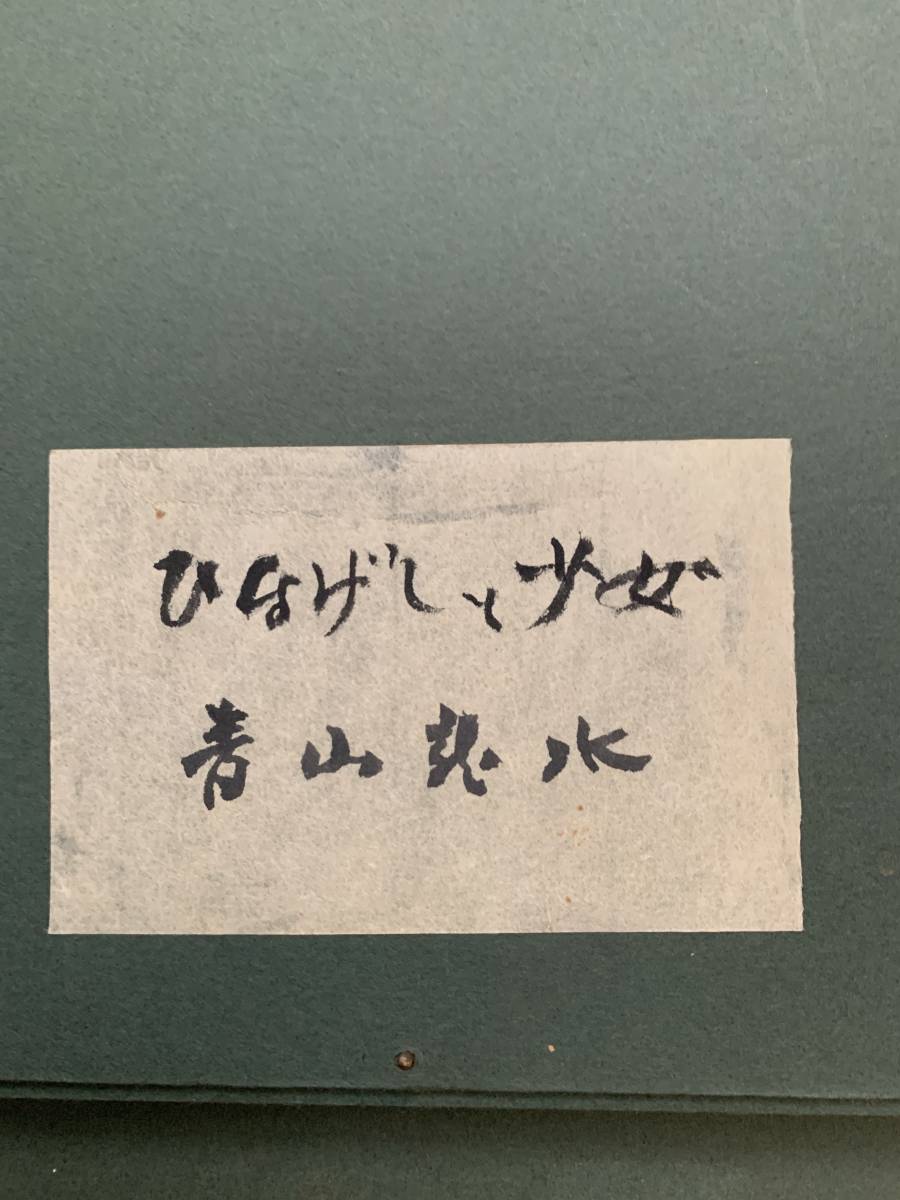 ひなげしと少女
青山龍水